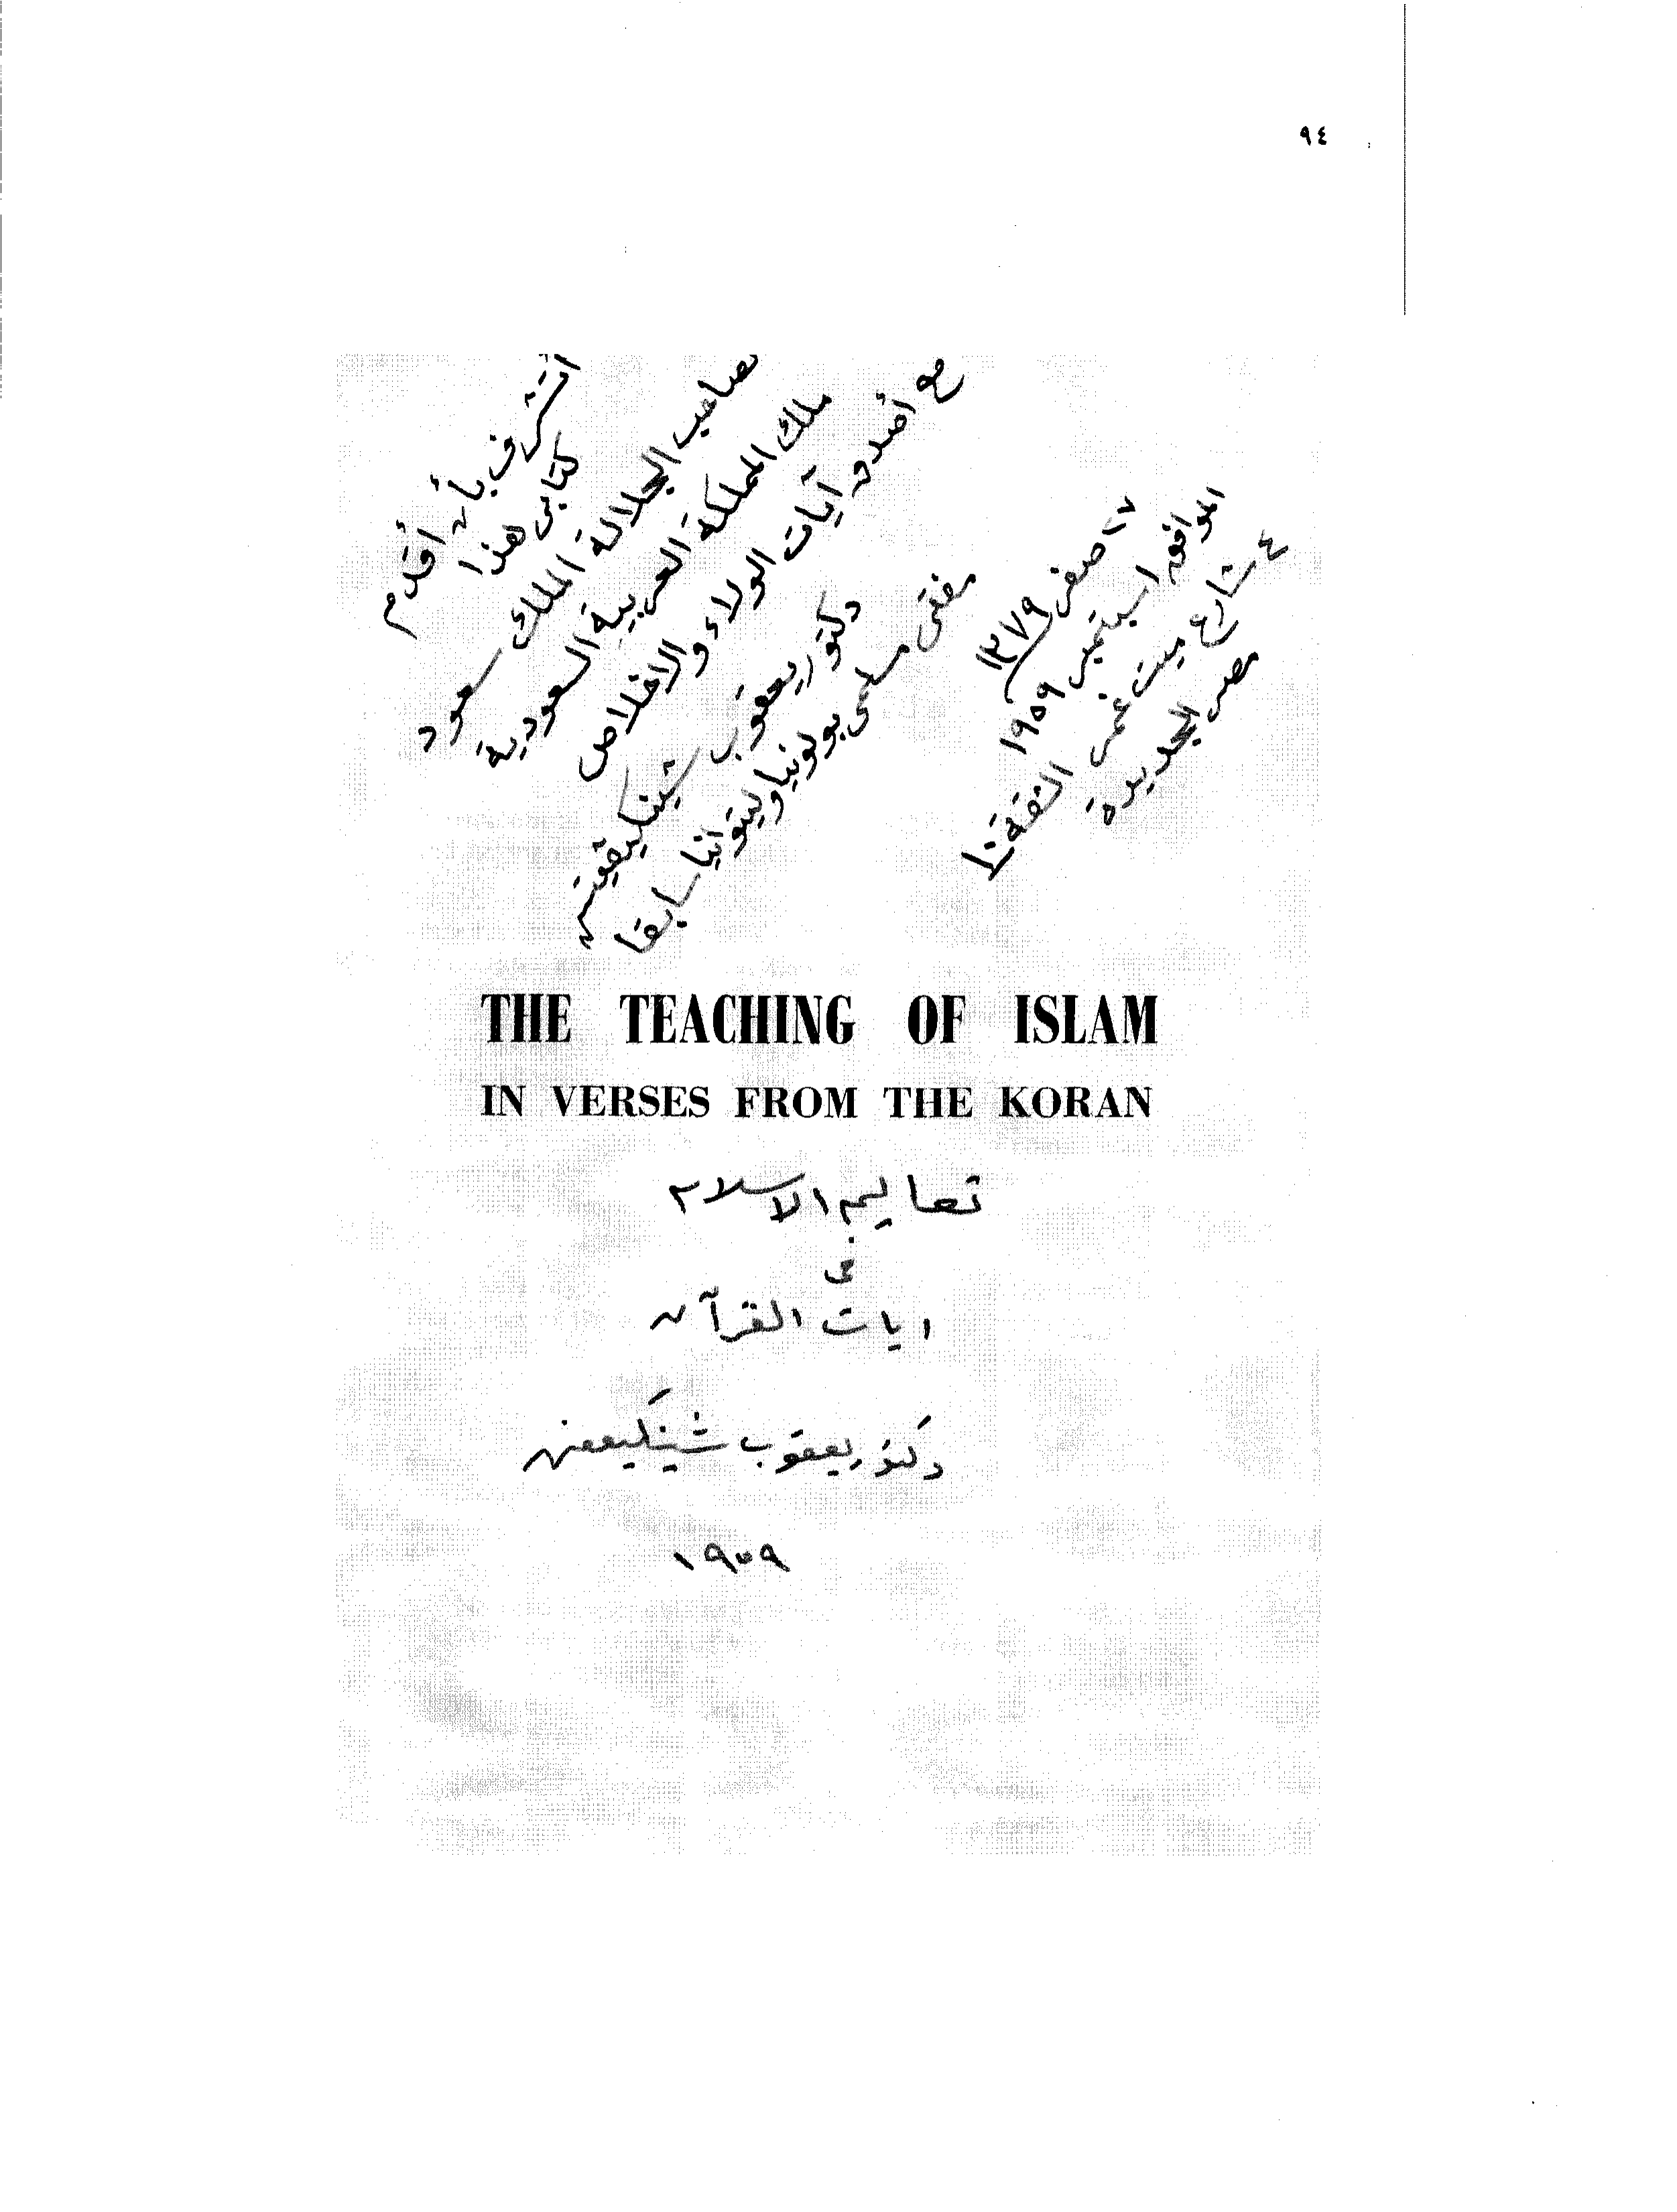 ٩٤
أتشرف بأن أقدم
كتابى هذا
لصاحب الجلالة الملك سعود
ملك المملكة العربية السعودية
مع أصدق آيات الولاء والاخلاص
دكتور يعقوب شينكيفتش
مفتى مسلمى بولونيا وليتوانيا سابقا
٢٧ صفر ١٣٧٩
الموافق ١ سبتمبر ١٩٥٩
٤ شارع ميت غمر الشقة ١٠
مصر الجديدة
THE TEACHING OF ISLAM
IN VERSES FROM THE KORAN
تعاليم الاسلام
فى
ايات القرآن
دكتور يعقوب شينكيفتش
١٩٥٩